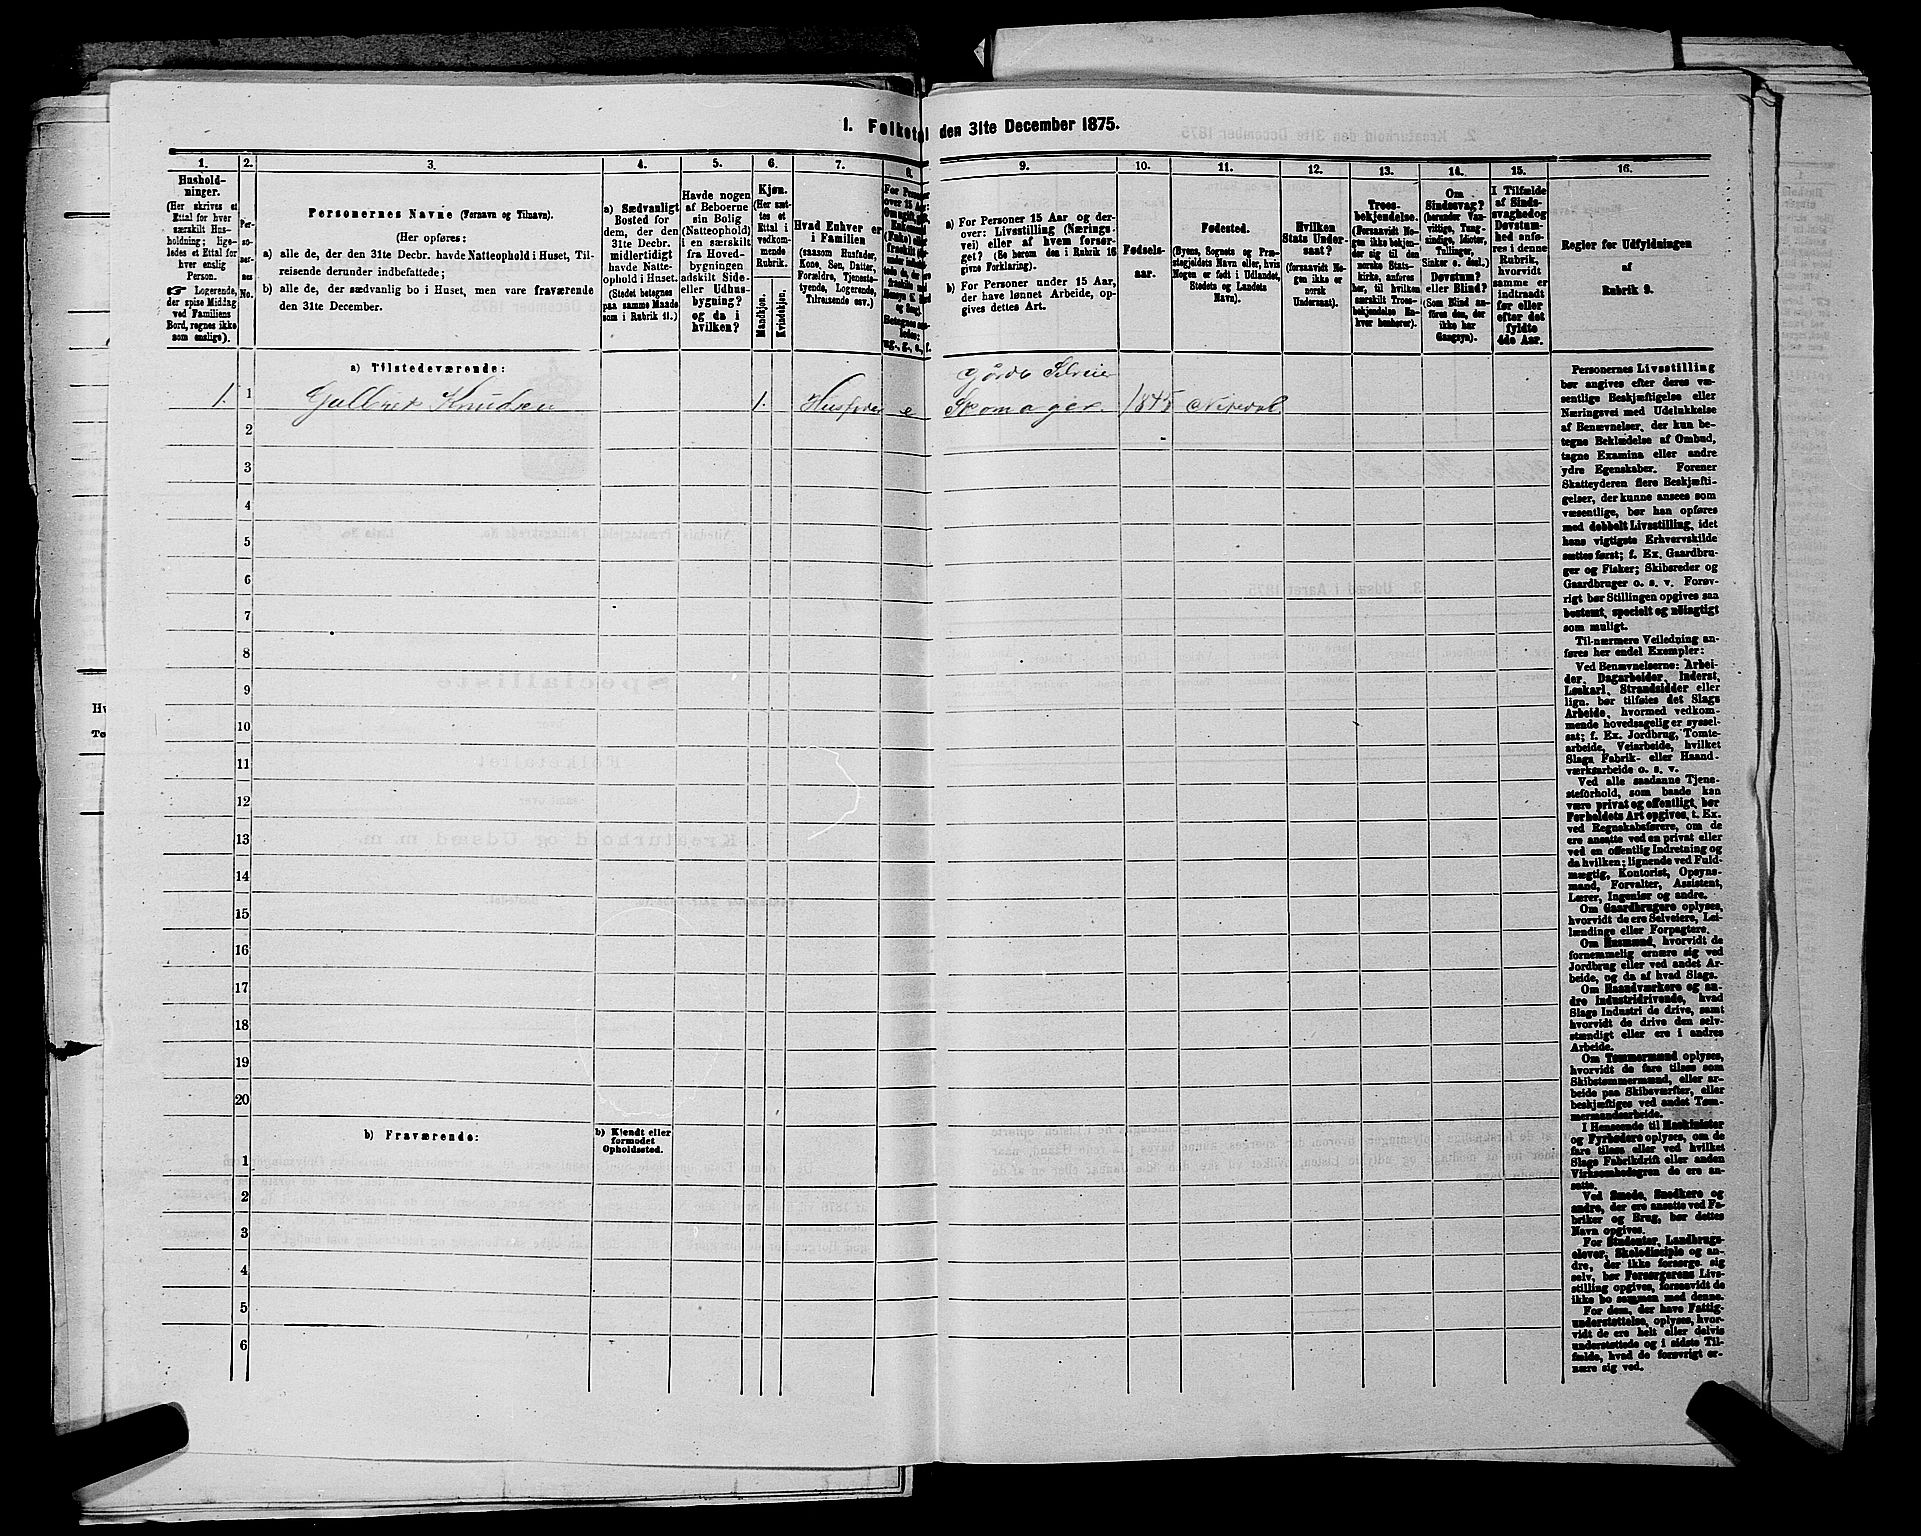 1. Folketal den 31te December 1875.
1.
Hushold-
ninger.
(Her skrives et
Ettal for hver
særskilt Hus-
holdning; lige-
ledes et Ettal for
hver enslig
Person.
☞ Logerende,
der spise Middag
ved Familiens
Bord, regnes ikke
som enslige).
2.
Per-
so-
ner-
nes
No.
3.
Personernes Navne (Fornavn og Tilnavn).
(Her opføres:
a) alle de, der den 31te Decbr. havde Natteophold i Huset, Til-
reisende derunder indbefattede;
b) alle de, der sædvanlig bo i Huset, men vare fraværende
den 31te December.
4.
a) Sædvanligt
Bosted for
dem, der den
31te Decbr.
midlertidigt
havde Natte-
ophold i Huset.
(Stedet betegnes
paa samme Maade
som i Rubrik 11.)
5.
Havde nogen
af Beboerne
sin Bolig
(Natteophold)
i en særskilt
fra Hoved-
bygningen
adskilt Side-
eller Udhus-
bygning?
og da i
hvilken?
6.
Kjøn.
(Her sæt-
tes et
Ettal i
vedkom-
mende
Rubrik.
Mandkjøn.
Kvindekjøn.
7.
Hvad Enhver er
i Familien
(saasom Husfader,
Kone, Søn, Datter,
Forældre, Tjeneste-
tyende, Logerende,
Tilreisende osv.)
8.
For Personer
over 15 Aar:
9.
a) For Personer 15 Aar og der-
over: Livsstilling (Nærings-
vei) eller af hvem forsør-
get? (Se herom den i Rubrik 16
givne Forklaring).
b) For Personer under 15 Aar,
der have lønnet Arbeide, op-
gives dettes Art.
10.
Fødsels-
aar.
11.
Fødested.
(Byens, Sognets og Præ-
stegjeldets Navn eller, hvis
Nogen er født i Udlandet,
Stedets og Landets
Navn).
12.
Hvilken
Stats Under-
saat?
(forsaavidt No-
gen ikke er
norsk
Undersaat).
13.
Troes-
bekjendelse.
(Forsaavidt No-
gen ikke bekjen-
der sig til den
norske Stats-
kirke, anføres
her, til hvilken
særskilt Troes-
bekjendelse En-
hver henhører).
14.
Om
Sindssvag?
(herunder Van-
vittige, Tung-
sindige, Idioter,
Tullinger,
Sinker o. desl.)
Døvstum?
eller Blind?
(Som Blind an-
føres den, der
ikke har
Gangsyn).
15.
I Tilfælde
af Sinds-
svaghed og
Døvstum-
hed anfø-
res i denne
Rubrik,
hvorvidt
samme er
indtraadt
før eller
efter det
fyldte
4de Aar.
16.
Regler for Udfyldningen
af
Rubrik 9.
a) Tilstedeværende:
Gårdb Selveier
1. 1 Gulbret Knudsen 1. Husfader e Skomager 1845 Nitedal
2
3
4
5
6
7
8
9
10
11
12
13
14
15
16
17
18
19
20
b) Fraværende:
b) Kjendt eller
formodet
Opholdssted.
1
2
3
4
5
6
Personernes Livsstilling
bør angives efter deres væ-
sentlige Beskjæftigelse eller
Næringsvei med Udelukkelse
af Benævnelser, der kun be-
tegne Beklædelse af Ombud,
tagne Examina eller andre
ydre Egenskaber. Forener
Skatteyderen flere Beskjæfti-
gelser, der kunne ansees som
væsentlige, bør han opføres
med dobbelt Livsstilling, idet
hans vigtigste Erhvervskilde
sættes først; f. Ex. Gaardbru-
ger og Fisker; Skibsreder og
Gaardbruger o. s. v. Forøv-
rigt bør Stillingen opgives saa
bestemt, specielt og nøiagtigt
som muligt.
Til nærmere Veiledning an-
føres her endel Exempler:
Ved Benævnelserne: Arbei-
der, Dagarbeider, Inderst,
Løskarl, Strandsidder eller
lign. bør tilføies det Slags
Arbeide, hvormed vedkom-
mende hovedsagelig er syssel-
sat; f. Ex. Jordbrug, Tomte-
arbeide, Veiarbeide, hvilket
Slags Fabrik- eller Haand-
værksarbeide o. s. v.
Ved alle saadanne Tjene-
steforhold, som baade kan
være privat og offentligt, bør
Forholdets Art opgives, f. Ex.
ved Regnskabsførere, om de
ere ansatte ved en privat eller
ved en offentlig Indretning og
da hvilken; lignende ved Fuld-
mægtig, Kontorist, Opsyns-
mand, Forvalter, Assistent,
Lærer, Ingeniør og andre.
Om Gaardbrugere oplyses,
hvorvidt de ere Selveiere, Lei-
lændinge eller Forpagtere.
Om Husmænd, hvorvidt de
fornemmelig ernære sig ved
Jordbrug eller ved andet Ar-
beide, og da af hvad Slags.
Om Haandværkere og an-
dre Industridrivende, hvad
Slags Industri de drive, samt
hvorvidt de drive den selv-
stændigt eller ere i andres
Arbeide.
Om Tømmermænd oplyses,
hvorvidt de fare tilsøs som
Skibstømmermænd, eller ar-
beide paa Skibsværfter, eller
beskjæftiges ved andet Tøm-
mermandsarbeide.
I Henseende til Maskinister
og Fyrbødere oplyses, om de
fare tilsøs eller ved hvilket
Slags Fabrikdrift eller anden
Virksomhed egen de ere an-
satte.
Ved Smede, Snedkere og
andre, der ere ansatte ved Fa-
briker og Brug, bør dettes
Navn opgives.
For Studenter, Landbrugs-
elever, Skoledisciple og an-
dre, der ikke forsørge sig
selv, bør Forsørgerens Livs-
stilling opgives, forsaavidt de
ikke bo sammen med denne.
For dem, der have Fattig-
understøttelse, oplyses, hvor-
vidt de ere helt eller delvis
understøttede og i sidste Til-
fælde, hvad de forøvrigt er-
nære sig ved.